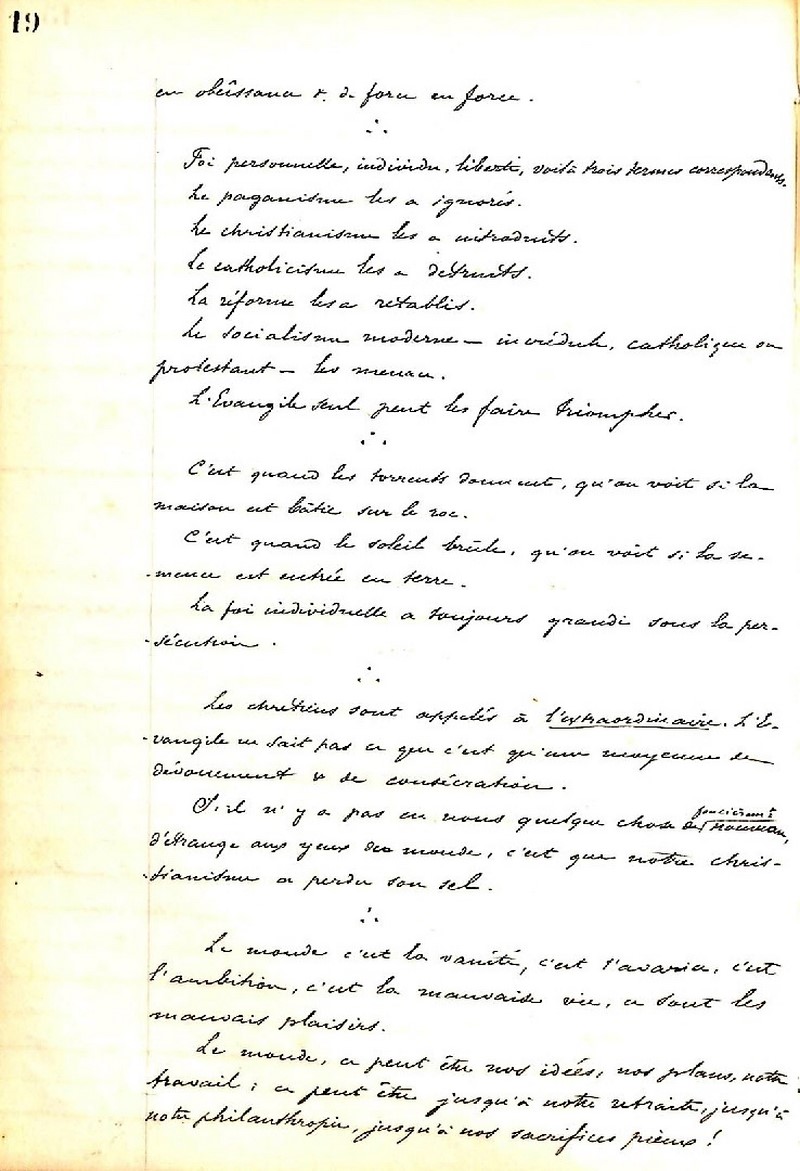 19
en obéissance & de force en force.
Foi personnelle, individu, liberté, voilà trois termes correspondants.
Le paganisme les a ignorés.
Le christianisme les a introduits.
Le catholicisme les a détruits.
La réforme les a rétablis.
Le socialisme moderne — incrédule, catholique ou
protestant — les menace.
L'Evangile seul peut les faire triompher.
C'est quand les torrents donnent, qu'on voit si la
maison est bâtie sur le roc.
C'est quand le soleil brûle, qu'on voit si la se-
-mence est entrée en terre.
La foi individuelle a toujours grandi sous la per-
-sécution.
Les chrétiens sont appelés à l'extraordinaire. L'E-
-vangile ne sait pas ce que c'est qu'une moyenne de
dévouement & de consécration.
S'il n'y a pas en nous quelque chose de foncièremt nouveau,
d'étrange aux yeux du monde, c'est que notre chris-
-tianisme a perdu son sel.
Le monde c'est la vanité, c'est l'avarice, c'est
l'ambition, c'est la mauvaise vie, ce sont les
mauvais plaisirs.
Le monde, ce peut être nos idées, nos plans, notre
travail; ce peut être jusqu'à notre retraite, jusqu'à
notre philanthropie, jusqu'à nos sacrifices pieux!